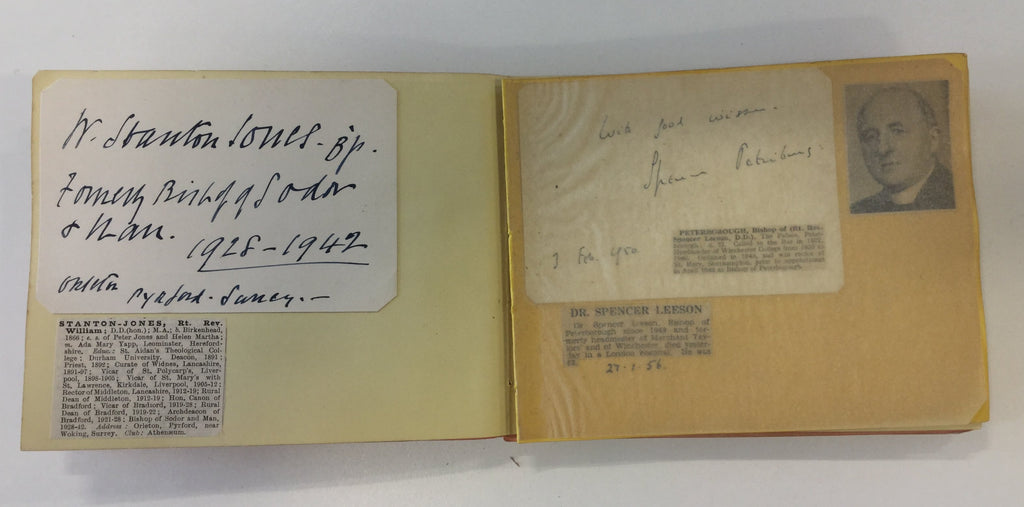 W. Stanton Jones. Bp.
Formerly Bishop of Sodor
& Man.
1928-1942
Orleton
Pyrford. Surrey.-
STANTON-JONES, Rt. Rev.
William; D.D.(hon.); M.A.; b. Birkenhead,
1866; e. s. of Peter Jones and Helen Martha;
m. Ada Mary Yapp, Leominster, Hereford-
shire. Educ.: St. Aidan's Theological Col-
lege; Durham University. Deacon, 1891;
Priest, 1892; Curate of Widnes, Lancashire,
1891-97; Vicar of St. Polycarp's, Liver-
pool, 1898-1905; Vicar of St. Mary's with
St. Lawrence, Kirkdale, Liverpool, 1905-12;
Rector of Middleton, Lancashire, 1912-19; Rural
Dean of Middleton, 1912-19; Hon. Canon of
Bradford; Vicar of Bradford, 1919-28; Rural
Dean of Bradford, 1919-22; Archdeacon of
Bradford, 1921-28; Bishop of Sodor and Man,
1928-42. Address: Orleton, Pyrford, near
Woking, Surrey. Club: Athenæum.
With good wishes.
Spencer Petriburg:
3 Feb. 1950
PETERBOROUGH, Bishop of (Rt. Rev.
Spencer Leeson, D.D.). The Palace, Peter-
borough. Called to the Bar in
Headmaster of Winchester College from
Ordained in and was rector of
St. Mary, Southampton, prior to appointment
in April as Bishop of Peterborough.
DR. SPENCER LEESON
Dr. Spencer Leeson, Bishop of
Peterborough since 1949 and for-
merly headmaster of Merchant Tay-
lors' and of Winchester died yester-
day in a London hospital. He was
27-1-56.